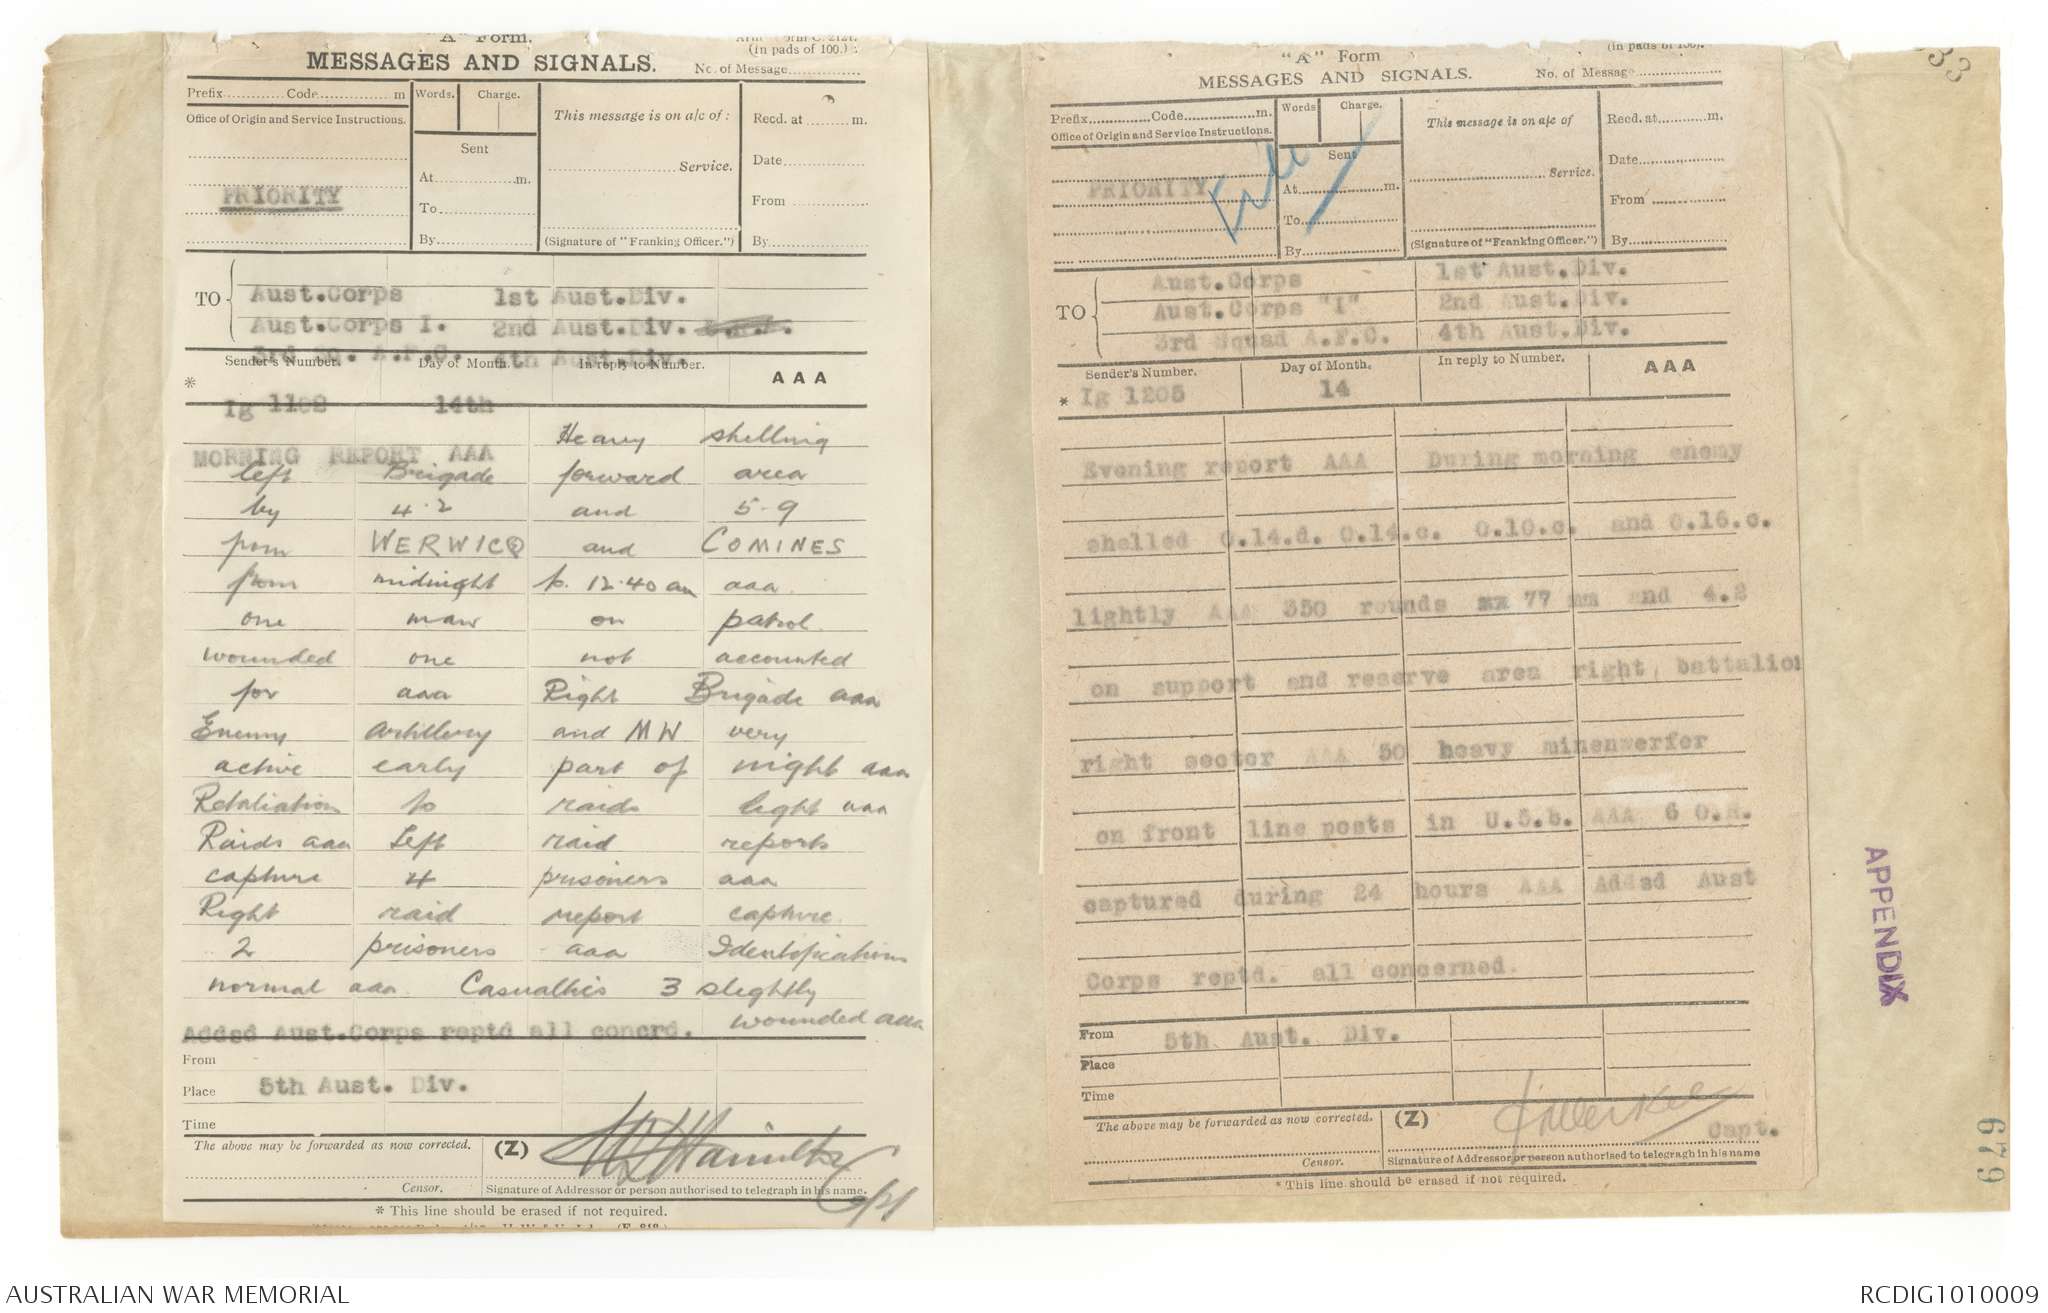 "A" Form.
(in pads of 100.)
MESSAGES AND SIGNALS.
No. of Message
Prefix Code m
Words.
Charge.
This message is on a/c of :
Recd. at m.
Office of Origin and Service Instructions.
PRIORITY
Sent
At m.
To
By
Service.
(Signature of "Franking Officer.")
Date
From
By
TO
Aust.Corps 1st Aust.Div.
Aust.Corps I. 2nd Aust.Div.
3rd Sq. A.F.C. 4th Aust.Div.
Sender's Number. Day of Month. In reply to Number. AAA
* Ig 1198 14th
MORNING REPORT AAA Heavy shelling
left Brigade forward area
by 4.2 and 5-9
from WERWICQ and COMINES
from midnight to 12.40 am aaa
one man on patrol
wounded one not accounted
for aaa Right Brigade aaa
Enemy Artillery and MW very
active early part of night aaa
Retaliation to raids light aaa
Raids aaa Left raid reports
capture 4 prisoners aaa
Right raid report capture
2 prisoners aaa Identifications
normal aaa Casualties 3 slightly
wounded aaa
Added Aust.Corps reptd all concrd.
From
Place 5th Aust. Div.
Time
The above may be forwarded as now corrected. (Z)
Censor. Signature of Addressor or person authorised to telegraph in his name.
* This line should be erased if not required.
"A" Form
(in pads of 100).
MESSAGES AND SIGNALS.
No. of Message
Prefix Code m.
Words
Charge.
This message is on a/c of
Recd. at m.
Office of Origin and Service Instructions.
PRIORITY
File
Sent
At m.
To
By
Service.
(Signature of "Franking Officer.")
Date
From
By
TO
Aust.Corps 1st Aust.Div.
Aust.Corps "I" 2nd Aust.Div.
3rd Squad A.F.C. 4th Aust.Div.
Sender's Number. Day of Month. In reply to Number. AAA
* Ig 1205 14
Evening report AAA During morning enemy
shelled O.14.d. O.14.c. O.10.c. and O.16.c.
lightly AAA 350 rounds 77 mm and 4.2
on support and reserve area right battalion
right sector AAA 50 heavy minenwerfer
on front line posts in U.5.b. AAA 6 O.R.
captured during 24 hours AAA Added Aust
Corps reptd. all concerned.
From 5th Aust. Div.
Place
Time
The above may be forwarded as now corrected. (Z)
Capt.
Censor. Signature of Addressor or person authorised to telegragh in his name
* This line should be erased if not required.
33
APPENDIX
679
AUSTRALIAN WAR MEMORIAL
RCDIG1010009